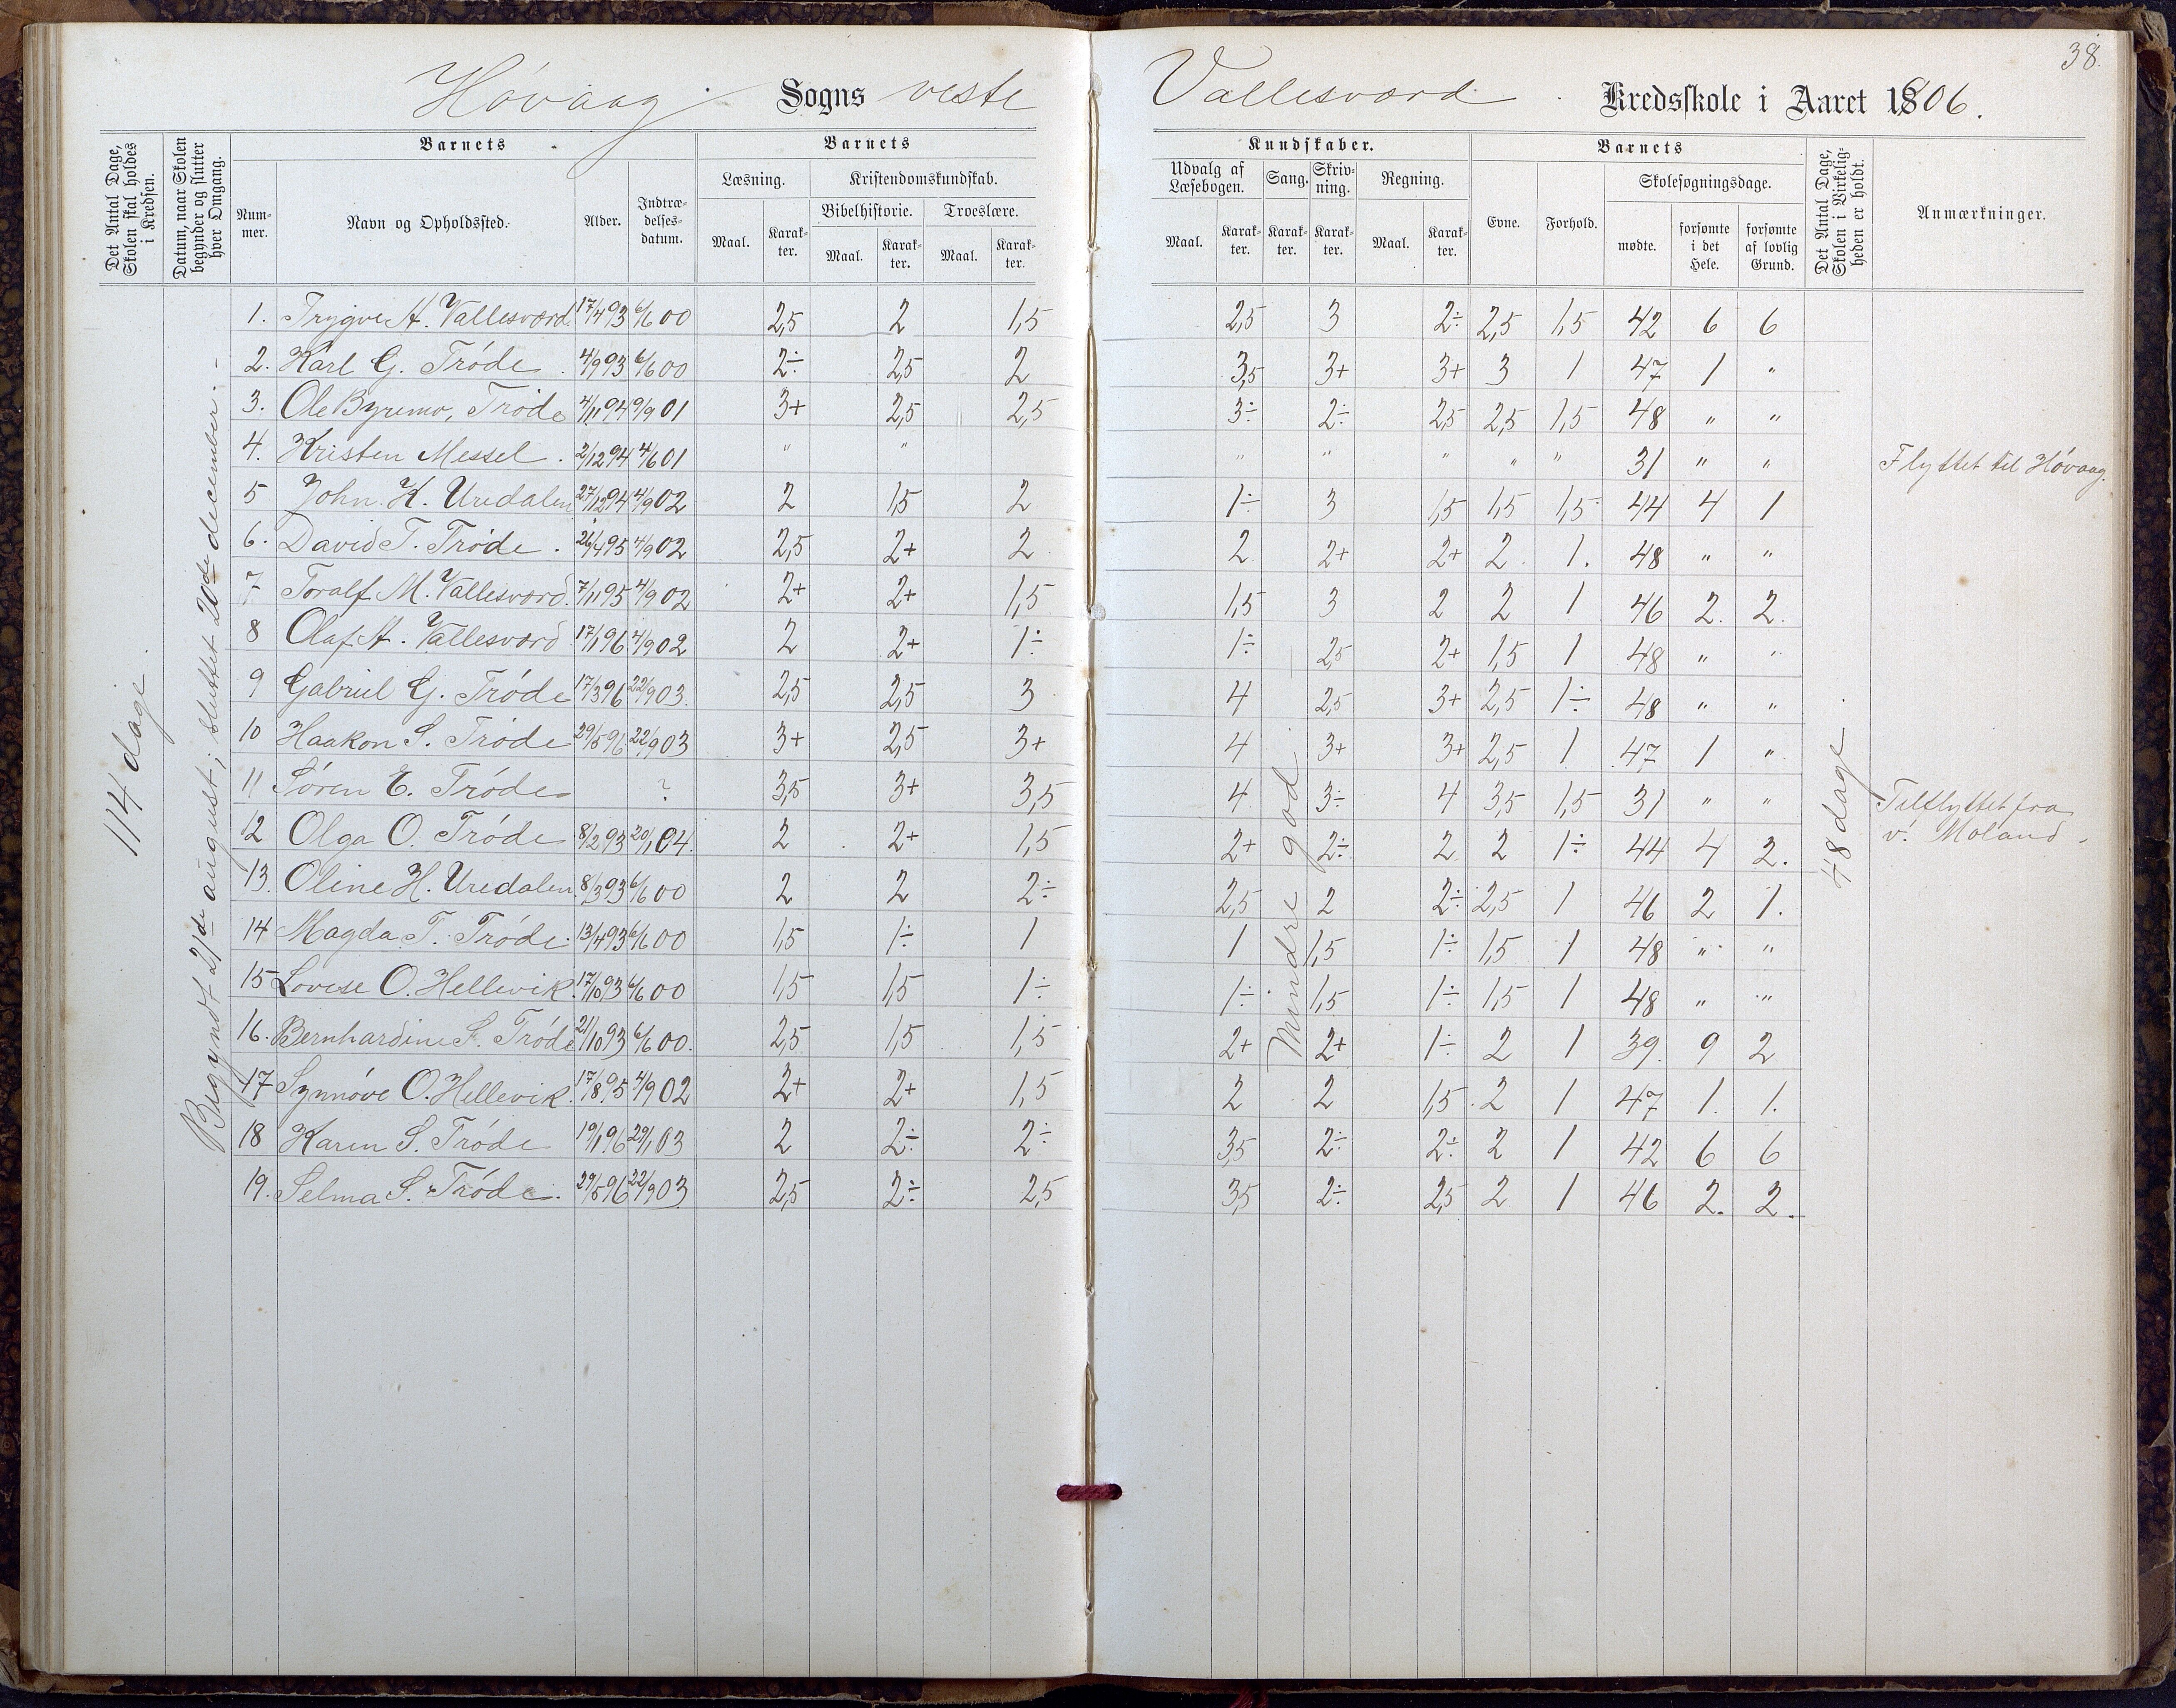 38.
Høvaag Sogns veste Vallesværd Kredsskole i Aaret 1906.
Det Antal Dage, Skolen skal holdes i Kredsen.
Datum, naar Skolen begynder og slutter hver Omgang.
Barnets
Nummer.
Navn og Opholdssted.
Alder.
Indtrædelsesdatum.
Barnets
Læsning.
Maal.
Karakter.
Kristendomskundskab.
Bibelhistorie.
Maal.
Karakter.
Troeslære.
Maal.
Karakter.
Kundskaber.
Udvalg af Læsebogen.
Maal.
Karakter.
Sang.
Karakter.
Skrivning.
Karakter.
Regning.
Maal.
Karakter.
Barnets
Evne.
Forhold.
Skolesøgningsdage.
mødte.
forsømte i det Hele.
forsømte af lovlig Grund.
Det Antal Dage, Skolen i Virkeligheden er holdt.
Anmærkninger.
114 dage.
Begyndt 21de august; sluttet 20de december. -
1. Trygve A. Vallesværd 17/4 93 6/6 00 2,5 2 1,5 2,5 3 2÷ 2,5 1,5 42 6 6
2. Karl G. Trøde 4/9 93 6/6 00 2÷ 2,5 2 3,5 3+ 3+ 3 1 47 1 "
3. Ole Byremo, Trøde 4/11 94 9/9 01 3+ 2,5 2,5 3÷ 2÷ 2,5 2,5 1,5 48 " "
4. Kristen Messel 2/12 94 4/6 01 " " " " " " " 31 " " Flyttet til Høvaag.
5 John K. Uredalen 27/12 94 4/9 02 2 1,5 2 1÷ 3 1,5 1,5 1,5 44 4 1
6. David T. Trøde 26/4 95 4/9 02 2,5 2+ 2 2 2+ 2+ 2 1. 48 " "
7 Toralf M. Vallesværd 7/11 95 4/9 02 2+ 2+ 1,5 1,5 3 2 2 1 46 2. 2.
8 Olaf A. Vallesværd 17/1 96 4/9 02 2 2+ 1÷ 1÷ 2,5 2+ 1,5 1 48 " "
9 Gabriel G. Trøde 17/3 96 22/9 03. 2,5 2,5 3 4 2,5 3+ 2,5 1÷ 48 " "
10 Haakon S. Trøde 29/5 96 22/9 03 3+ 2,5 3+ 4 3+ 3+ 2,5 1 47 1 "
11 Søren E. Trøde ? 3,5 3+ 3,5 4 3÷ 4 3,5 1,5 31 " " Tilflyttet fra
12 Olga O. Trøde 8/2 93 20/1 04. 2 2+ 1,5 2+ 2÷ 2 2 1÷ 44 4 2. v. Moland
13. Oline H. Uredalen 8/3 93 6/6 00 2 2 2÷ 2,5 2 2÷ 2,5 1 46 2 1.
14 Magda T. Trøde 13/4 93 6/6 00 1,5 1÷ 1 1 1,5 1÷ 1,5 1 48 " "
15 Lovise O. Hellevik 17/10 93 6/6 00 1,5 1,5 1÷ 1÷ 1,5 1÷ 1,5 1 48 " "
16. Bernhardine S. Trøde 21/10 93 6/6 00. 2,5 1,5 1,5 2+ 2+ 1÷ 2 1 39. 9 2
17 Synnøve O. Hellevik 17/8 95 4/9 02 2+ 2+ 1,5 2 2 1,5 2 1 47 1. 1.
18 Karen S. Trøde 19/1 96 29/1 03 2 2÷ 2÷ 3,5 2÷ 2÷ 2 1 42 6 6
19. Selma S. Trøde 29/5 96 22/9 03 2,5 2÷ 2,5 3,5 2÷ 2,5 2 1 46 2. 2.
Mindre god.
48 dage.